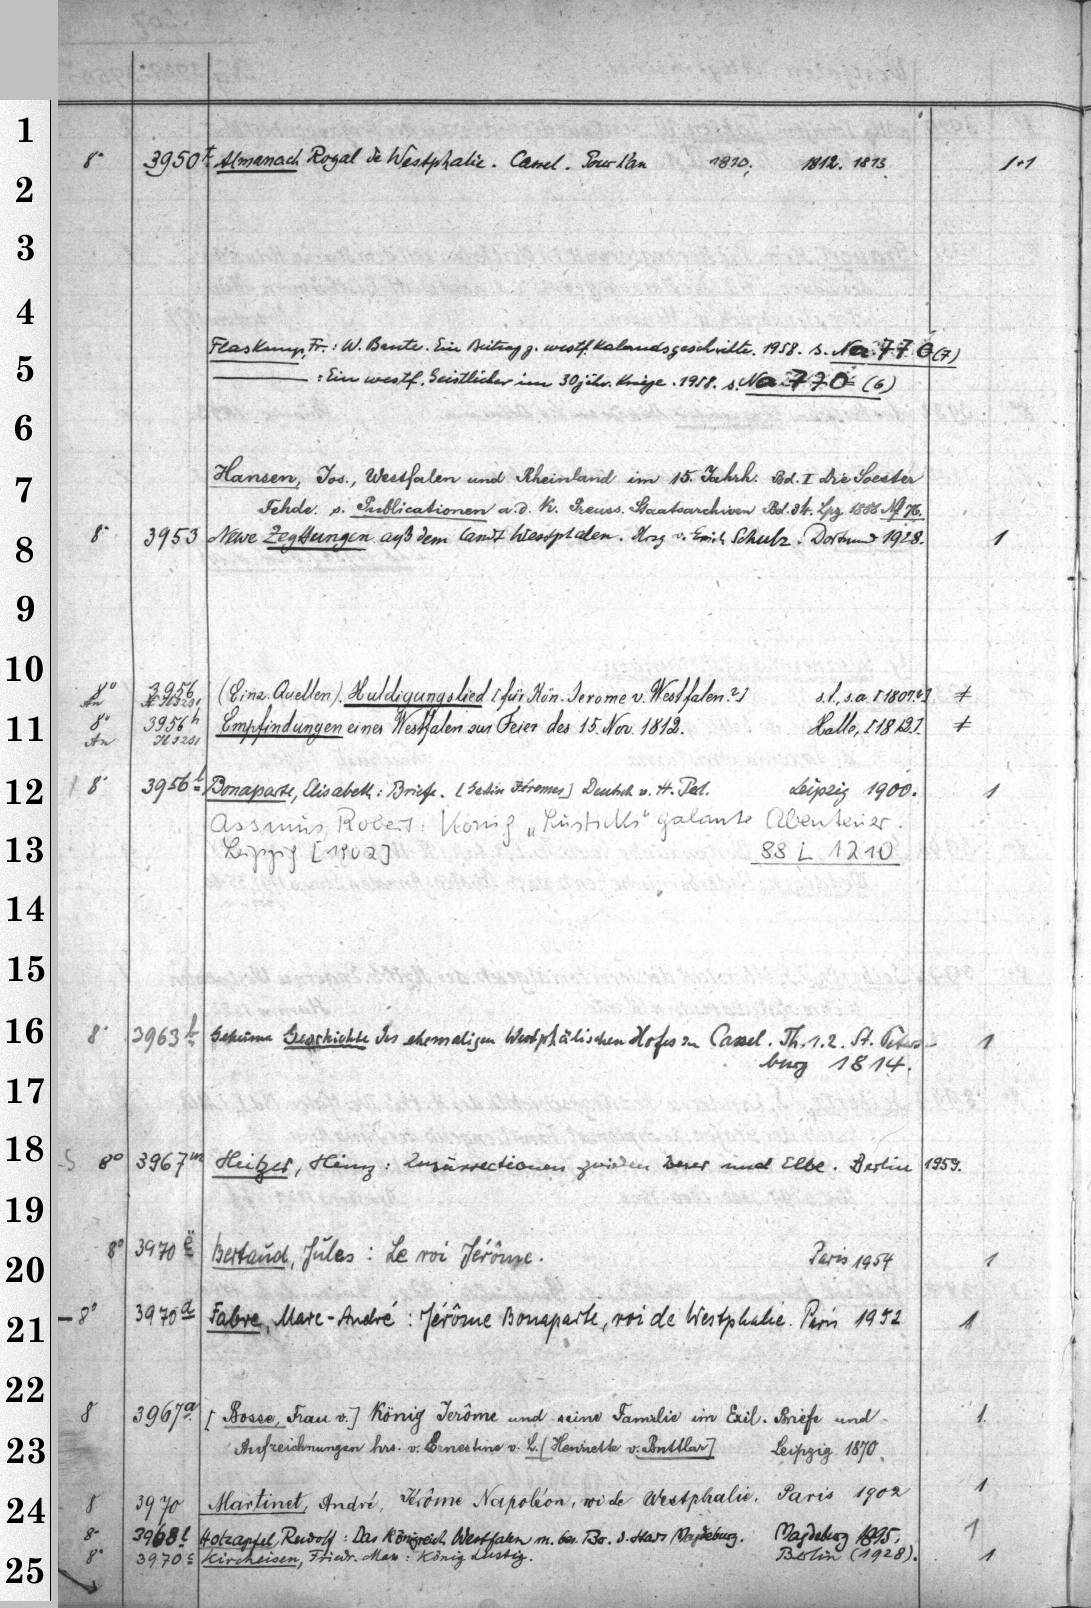 1
8° 3950 f Almanach Royal de Westphalie. Cassel. Pour l'an 1810, 1812. 1813. 1+1
2
3
4
Flaskamp, Fr.: W. Bante. Ein Beitrag z. westf. Kalandsgeschichte. 1958. s. Na 770 (7)
5
: Ein westf. Geistlicher im 30jähr. Kriege. 1958. s. Na 770 (6)
6
7
Hansen, Jos., Westfalen und Rheinland im 15. Jahrh. Bd. I die Soester
Fehde. s. Publicationen a. d. K. Preuss. Staatsarchiven Bd. 34. Lpz. 1888
8
8° 3953 Newe Zeyttungen auß dem Landt Westphalen. Hrsg v. Erich Schulz. Dortmund 1928. 1
9
10
8° 3956 (Einz. Quellen). Huldigungslied [für Kön. Jerome v. Westfalen?] s.l., s.a. [1807?] ≠
An
11
8° 3956 h Empfindungen eines Westfalen zur Feier des 15. Nov. 1812. Halle, [1812]. ≠
An
12
8° 3956 Bonaparte, Elisabeth: Briefe. [Gattin Jéromes] Deutsch v. H. Leipzig 1900. 1
Assmus, Robert: König „Lustiks" galante Abenteuer.
13
Leipzig [1902] 88 L 1210
14
15
16
8° 3963 Geheime Geschichte des ehemaligen Westphälischen Hofes zu Cassel. Th. 1. 2. St. Peters- 1
burg 1814.
17
18
8° 3967 m Heitzer, Heinz: Insurrectionen zwischen Weser und Elbe. Berlin 1959.
19
8° 3970 e Bertaud, Jules: Le roi Jérôme. Paris 1954 1
20
8° 3970 d Fabre, Marc-André: Jérôme Bonaparte, roi de Westphalie. Paris 1952 1
21
22
8 3967 a [Bosse, Frau v.] König Jerôme und seine Familie im Exil. Briefe und 1
23
Aufzeichnungen hrs. v. Ernestine v. L. [Henriette v. Buttlar] Leipzig 1870.
24
8 3970 Martinet, André, Jérôme Napoléon, roi de Westphalie. Paris 1902 1
8° 3968 Holzapfel, Rudolf: Das Königreich Westfalen m. bes. d. Stadt Magdeburg. Magdeburg 1895. 1
25
8° 3970 c Kircheisen, Friedr. Max: König Lustig. Berlin (1928). 1